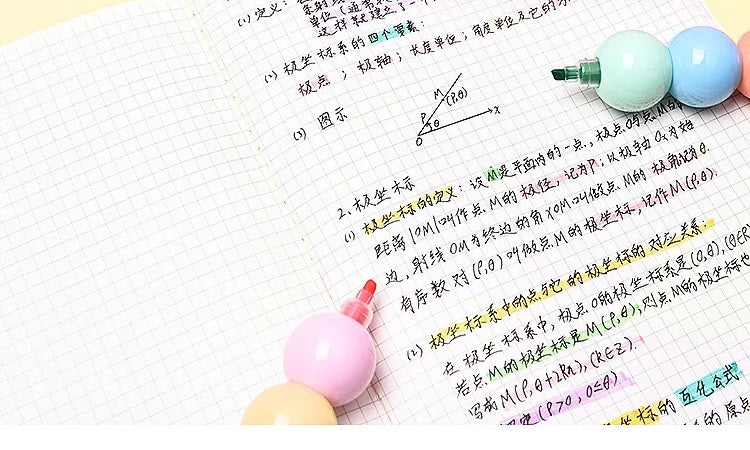 (1) 定义：
单位（通常
这样就建立了一个
(2) 极坐标系的四个要素：
极点；极轴；长度单位；角度单位及它的方
(3) 图示
M (ρ,θ)
ρ θ
O x
2、极坐标
(1) 极坐标的定义：设M是平面内的一点，极点O与点M的
距离|OM|叫作点M的极径，记为ρ，以极轴Ox为始
边，射线OM为终边的角xOM叫做点M的极角记为θ.
有序数对(ρ,θ)叫做点M的极坐标，记作M(ρ,θ).
(2) 极坐标系中的点与它的极坐标的对应关系：
在极坐标系中，极点O的极坐标系是(0,θ),(θ∈R)
若点M的极坐标是M(ρ,θ),则点M的极坐标也
写成M(ρ,θ+2kπ),(k∈Z).
定(ρ>0, 0≤θ
坐标的互化公式
的原点